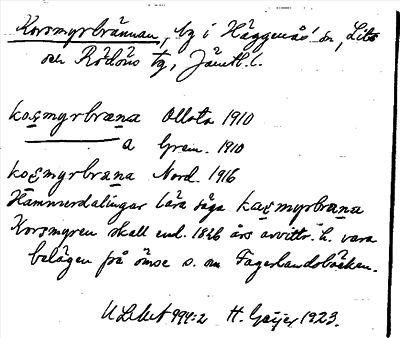 Korsmyrbrännan, by i Häggenås sn, Lits
och Rödöns tg, Jämtl. l.
kosmyrbræna Ollota 1910
a Grein. 1910
kosmyrbrana Nord. 1916
Hammerdalingar lära säga kasmyrbrana
Korsmyren skall enl. 1826 års avvittr. h. vara
belägen på ömse s. om Fagerlandsbäcken.
ULMA 994:2 H. Geijer 1923.